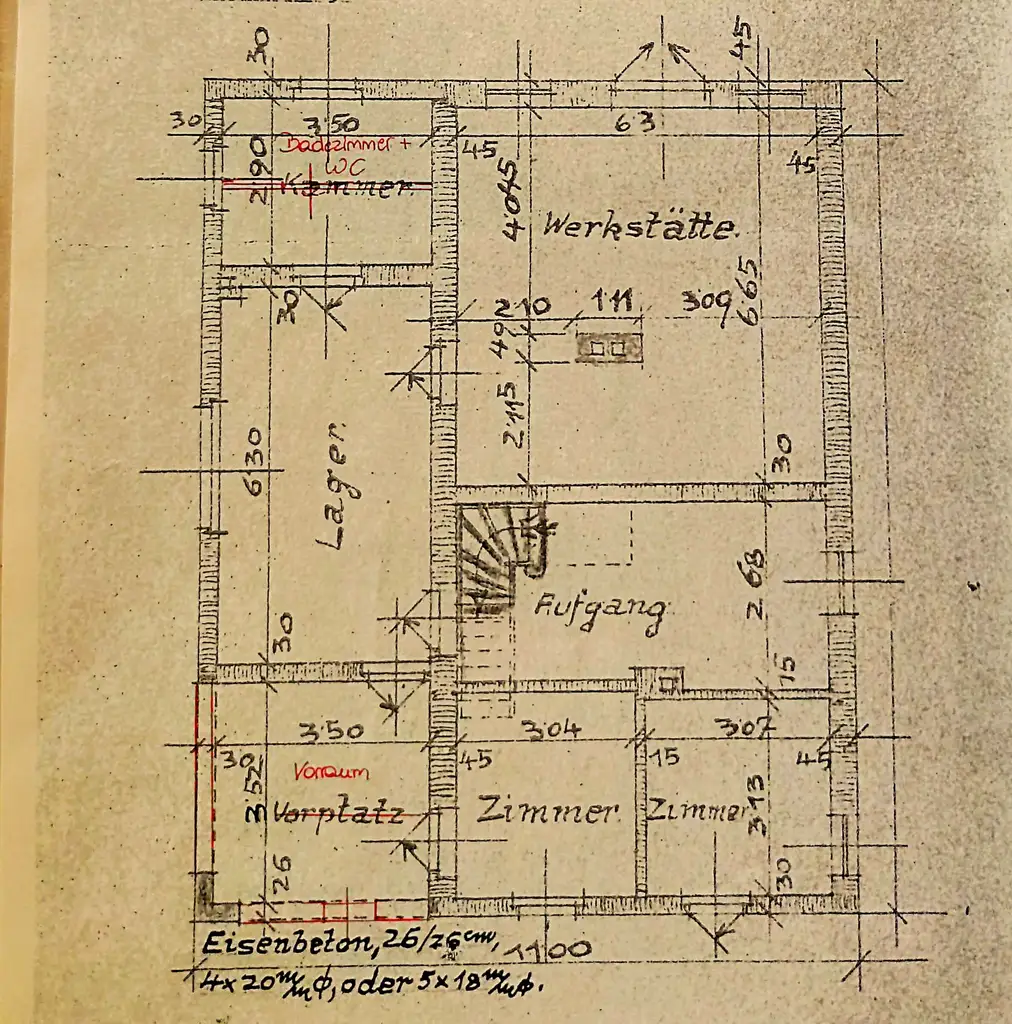 30
45
30
3.50
63
Badezimmer +
WC
45
45
2.90
Kammer.
4.045
Werkstätte.
30
2.10
1.11
3.09
6.65
49
2.115
6.30
Lager.
30
30
2.68
Aufgang
15
3.50
3.04
3.07
30
45
15
45
3.52
Vorraum
Vorplatz
Zimmer.
Zimmer
3.13
26
30
Eisenbeton, 26/26 cm,
11.00
4x20 m/m ϕ, oder 5x18 m/m ϕ.